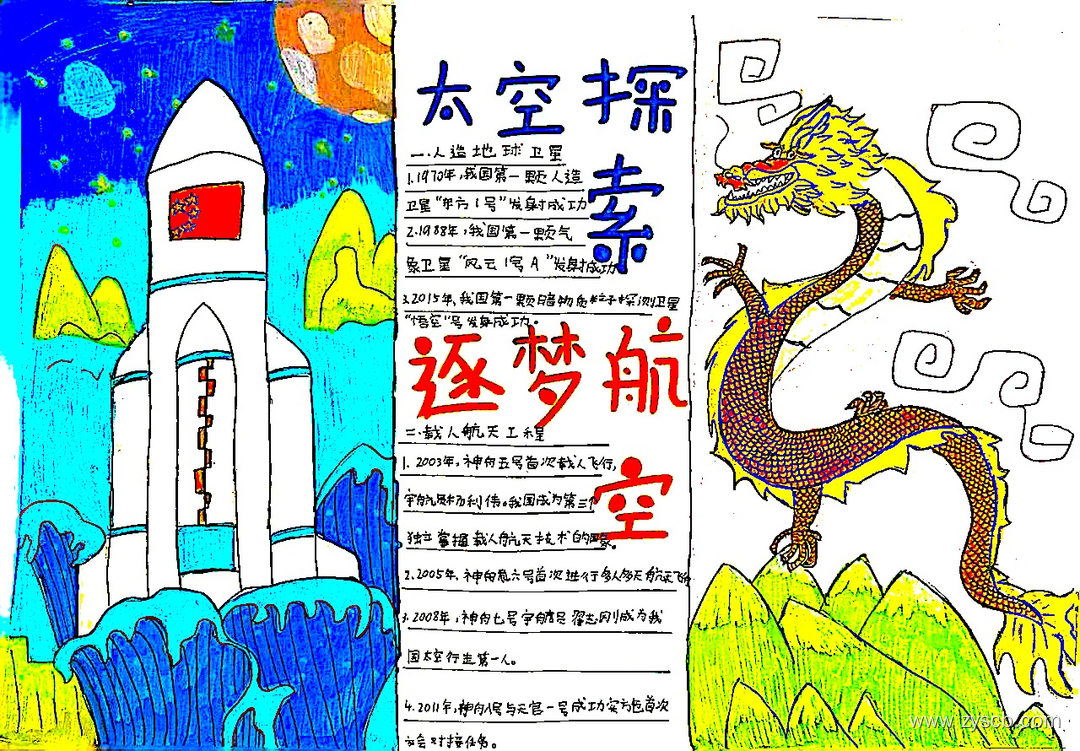 太空探
索
一.人造地球卫星
1.1970年,我国第一颗人造
卫星"东方1号"发射成功
2.1988年,我国第一颗气
象卫星"风云1号A"发射成功
3.2015年,我国第一颗暗物质粒子探测卫星
"悟空"号发射成功。
逐梦航
空
二.载人航天工程
1.2003年,神舟五号首次载人飞行,
宇航员杨利伟。我国成为第三个
独立掌握载人航天技术的国家。
2.2005年,神舟六号首次进行多人多天航天飞行
3.2008年,神舟七号宇航员翟志刚成为我
国太空行走第一人。
4.2011年,神舟八号与天宫一号成功实施首次
交会对接任务。
www.zyscb.com